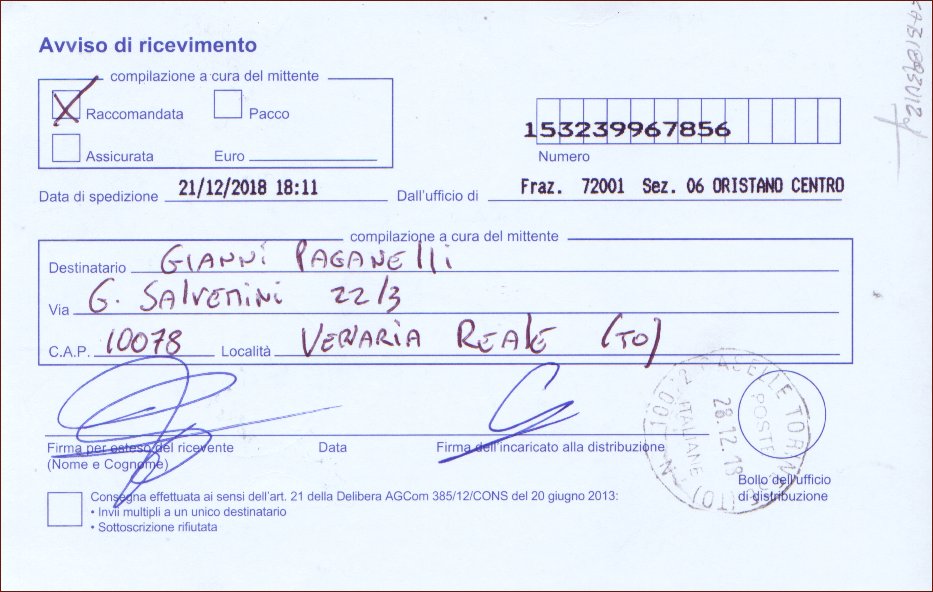 Avviso di ricevimento
compilazione a cura del mittente
Raccomandata Pacco
Assicurata Euro
153239967856
Numero
Data di spedizione 21/12/2018 18:11 Dall'ufficio di Fraz. 72001 Sez. 06 ORISTANO CENTRO
compilazione a cura del mittente
Destinatario GIANNI PAGANELLI
Via G. SALVEMINI 22/3
C.A.P. 10078 Località VENARIA REALE (TO)
Firma per esteso del ricevente Data Firma dell'incaricato alla distribuzione
(Nome e Cognome)
CASELLE TORIN
POSTE
28.12.18
ITALIANE
(TO)
Bollo dell'ufficio
di distribuzione
Consegna effettuata ai sensi dell'art. 21 della Delibera AGCom 385/12/CONS del 20 giugno 2013:
• Invii multipli a un unico destinatario
• Sottoscrizione rifiutata